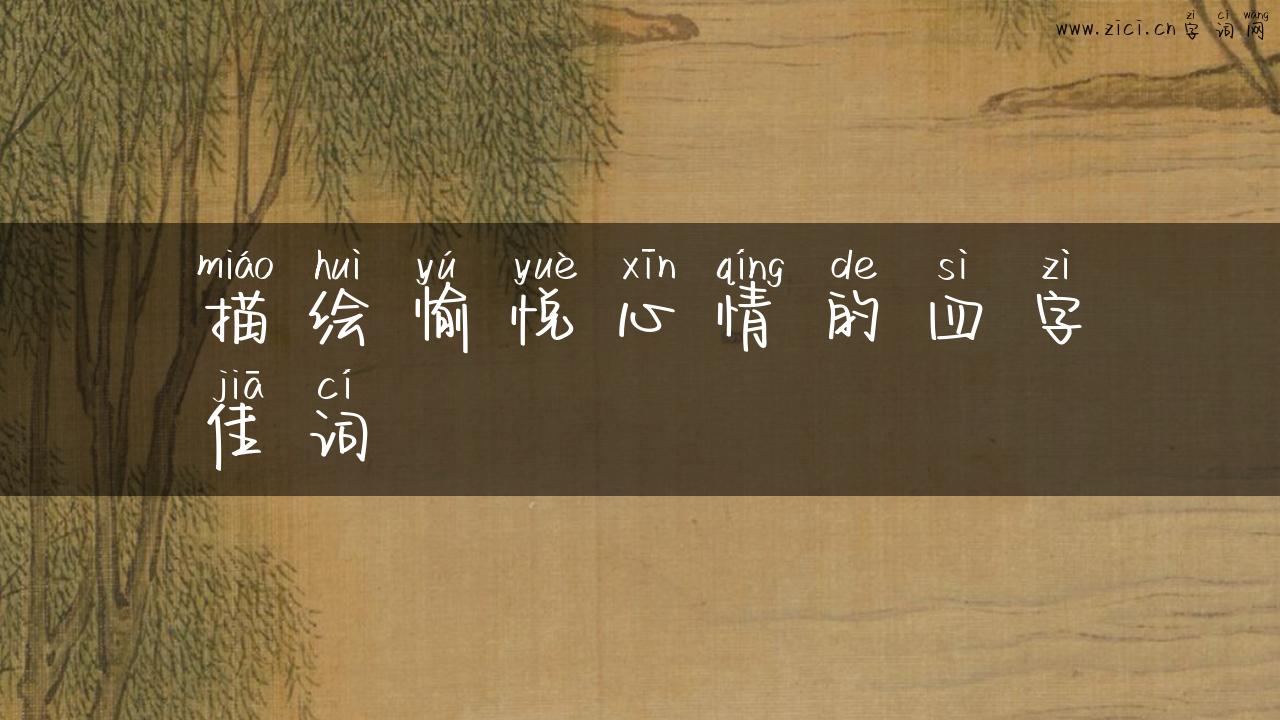 zì cí wǎng
www.zici.cn字词网
miáo huì yú yuè xīn qíng de sì zì
描绘愉悦心情的四字
jiā cí
佳词